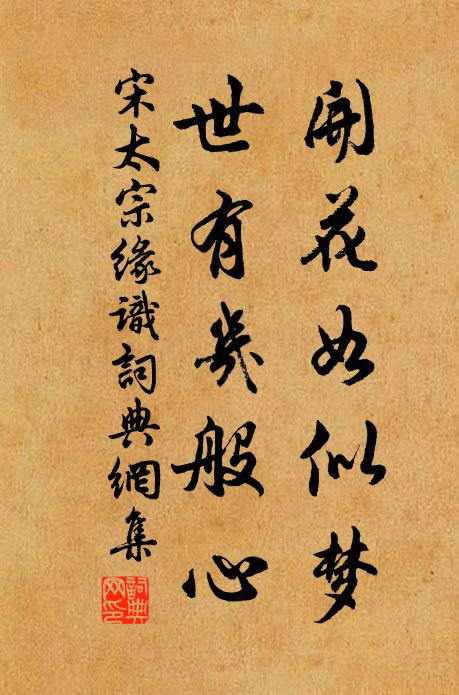 開花如似梦
世有幾般心
宋太宗緣識詞典網集
詞典网印